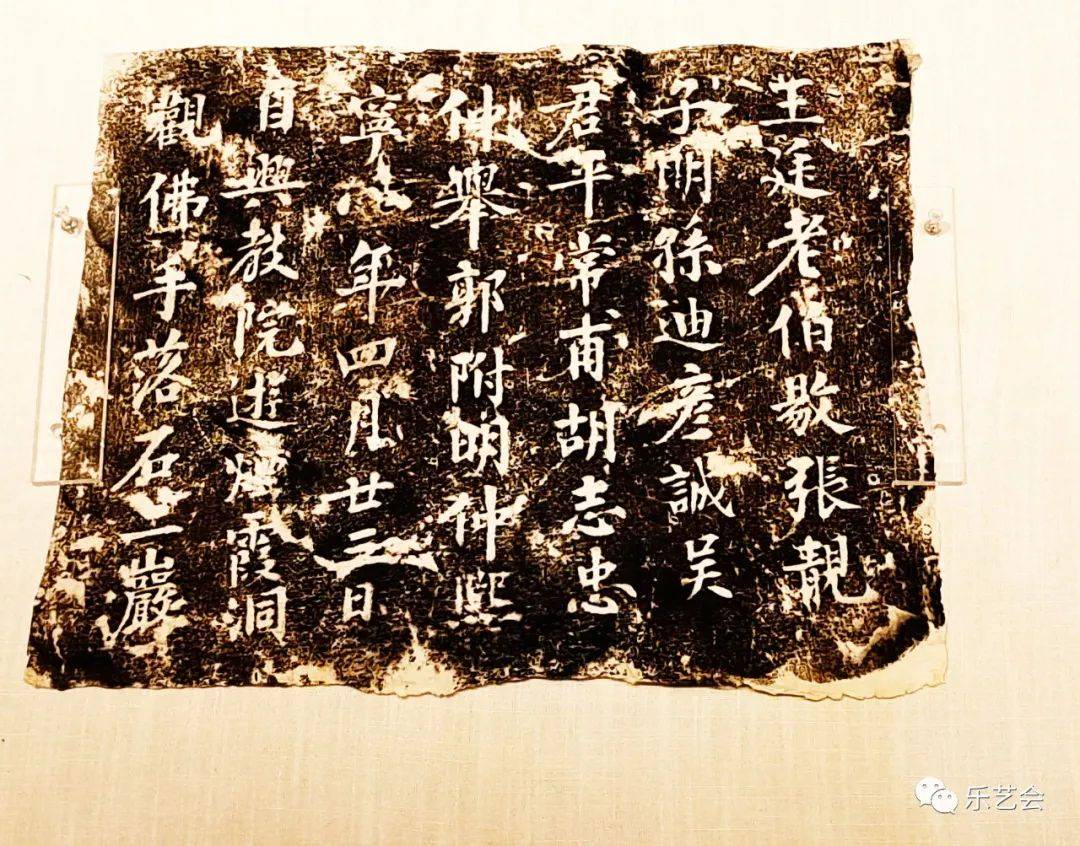 王廷老伯敭張靚
子明孫迪彥誠吴
君平常甫胡志忠
仲舉郭附明仲熙
寧八年四月廿三日
自興教院遊煙霞洞
觀佛手落石二巖
乐艺会